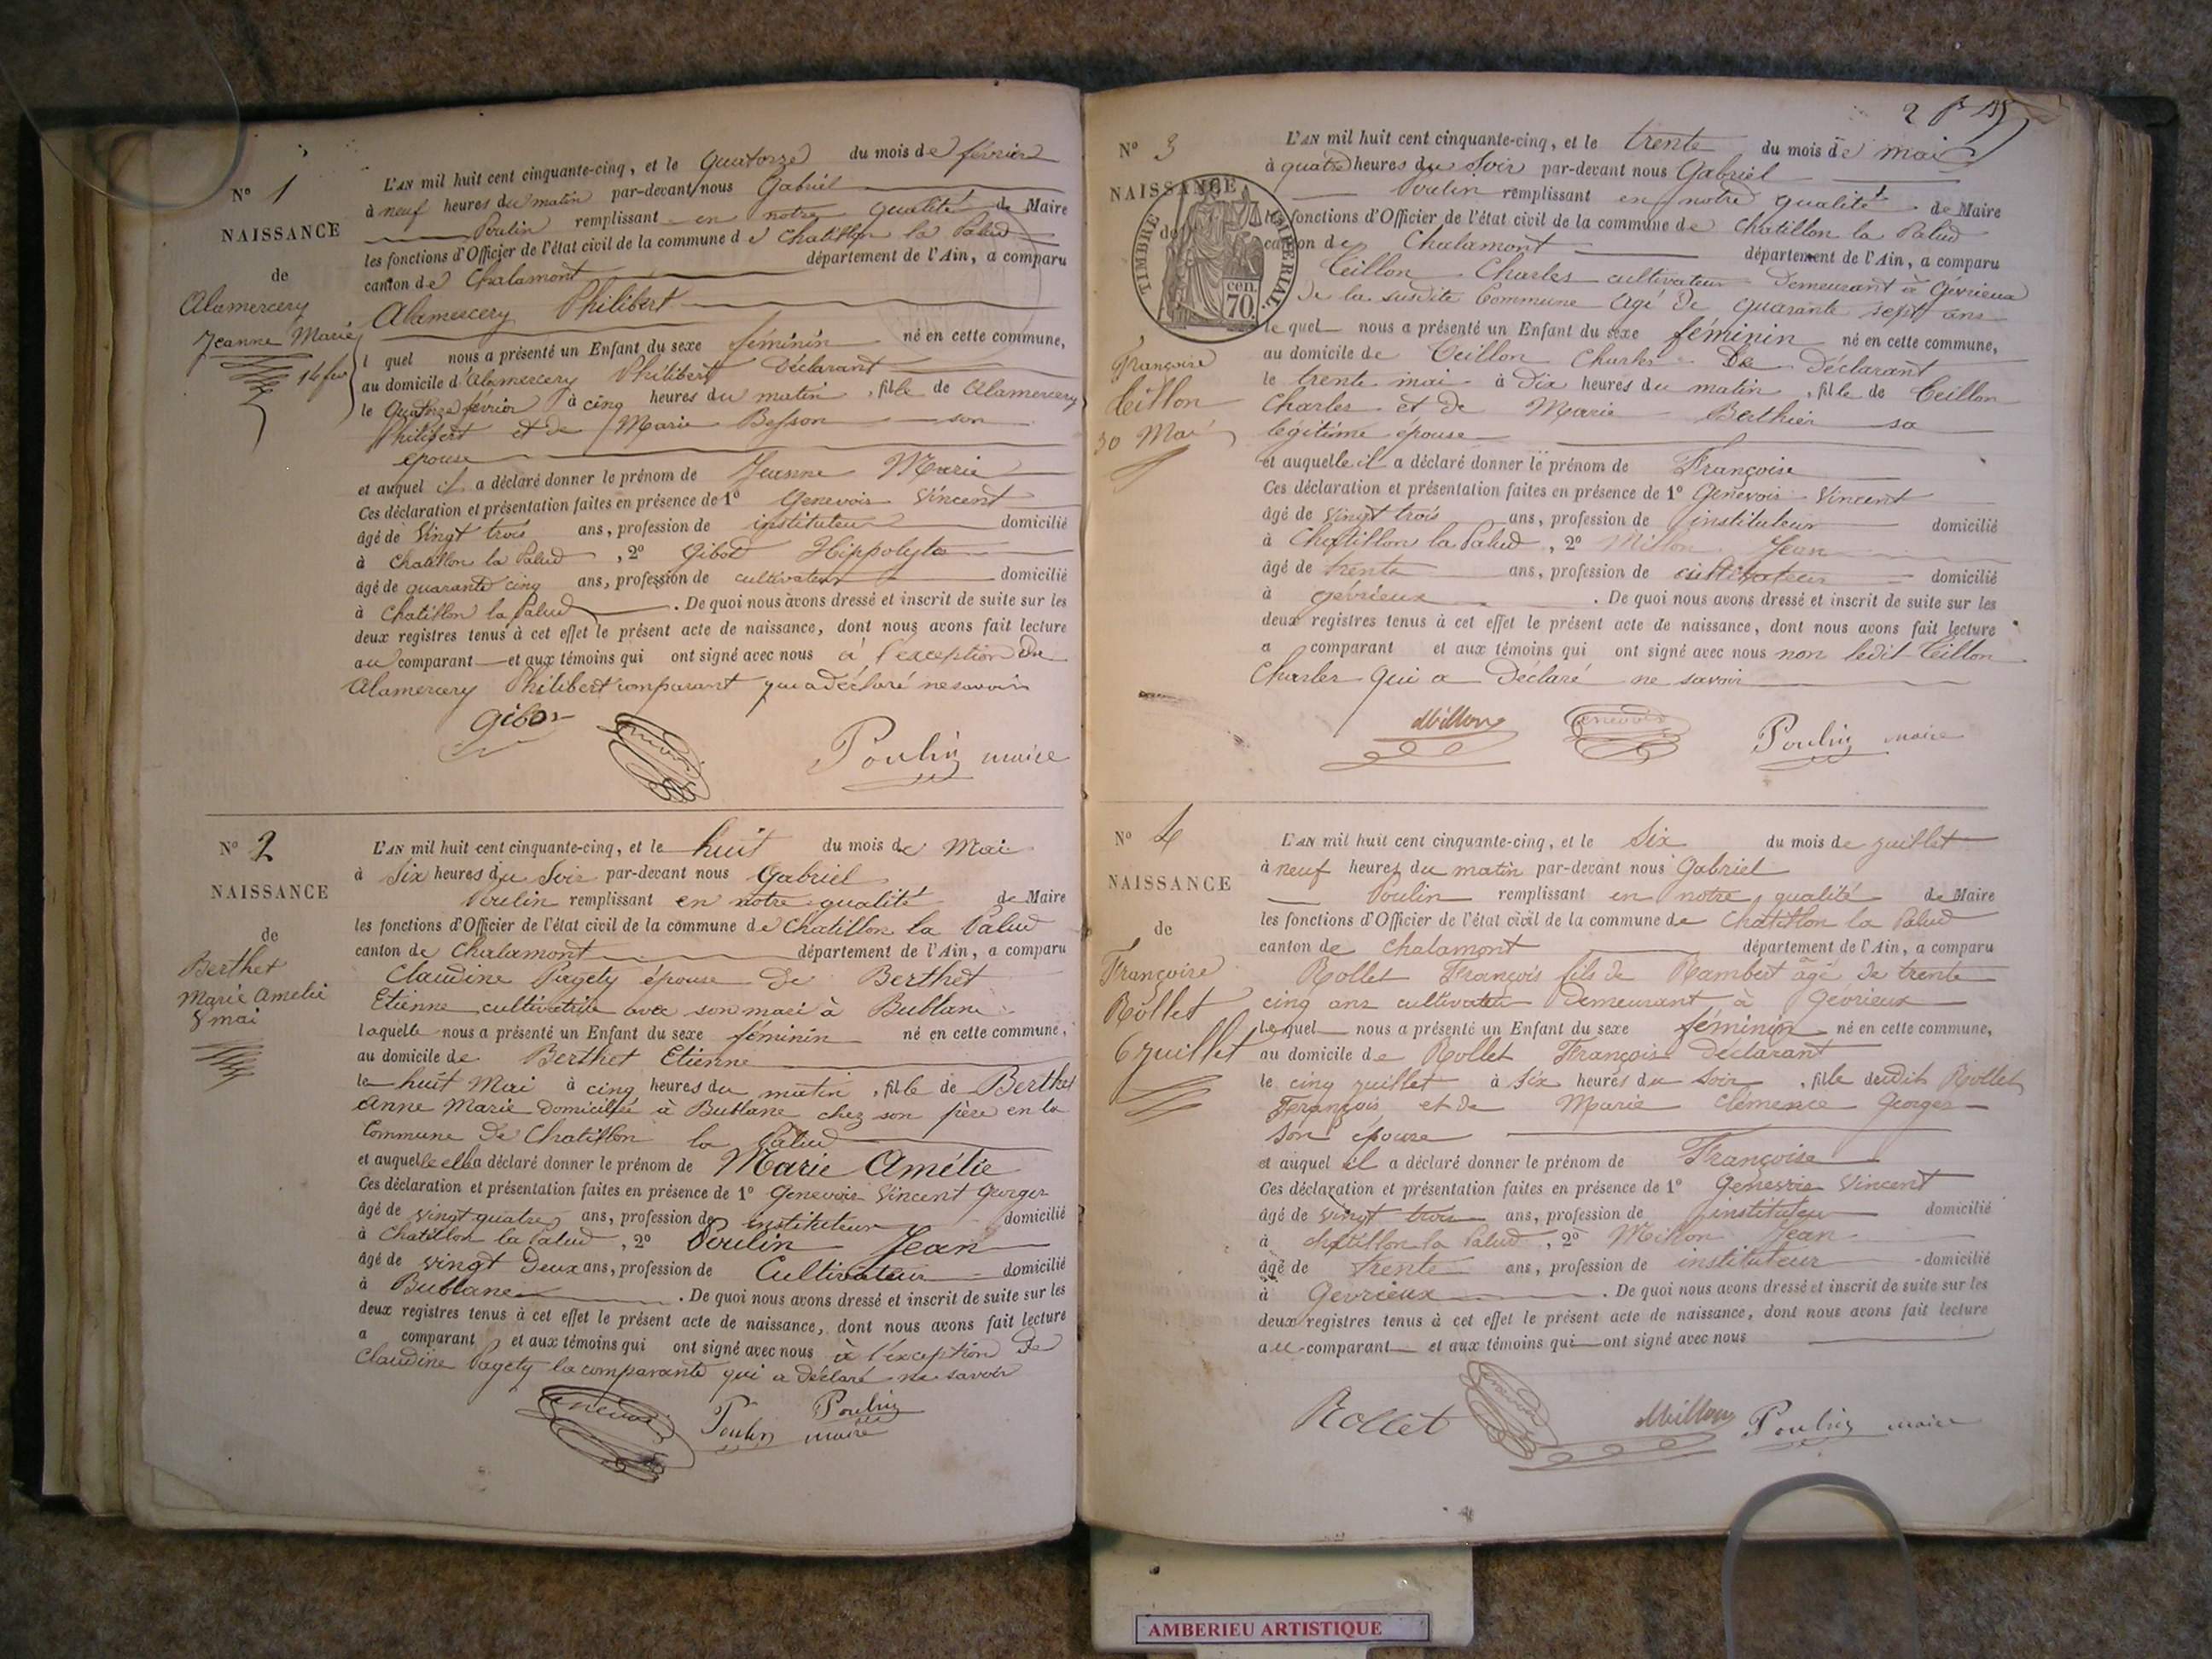 N° 1
NAISSANCE
de
Alamercery
Jeanne Marie
14 fev
L'AN mil huit cent cinquante-cinq, et le quatorze du mois de février
à neuf heures du matin par-devant nous Gabriel
Poulin remplissant en notre qualité de Maire
les fonctions d'Officier de l'état civil de la commune de Chatillon la Palud
canton de Chalamont département de l'Ain, a comparu
Alamercery Philibert
l quel nous a présenté un Enfant du sexe féminin né en cette commune,
au domicile d'Alamercery Philibert Déclarant
le Quatorze février à cinq heures du matin, fille de Alamercery
Philibert et de Marie Besson son
épouse
et auquel il a déclaré donner le prénom de Jeanne Marie
Ces déclaration et présentation faites en présence de 1° Genevois Vincent
âgé de Vingt trois ans, profession de instituteur domicilié
à Chatillon la Palud, 2° Gibod Hippolyte
âgé de quarante cinq ans, profession de cultivateur domicilié
à Chatillon la Palud. De quoi nous avons dressé et inscrit de suite sur les
deux registres tenus à cet effet le présent acte de naissance, dont nous avons fait lecture
au comparant et aux témoins qui ont signé avec nous à l'exception du
Alamercery Philibert comparant qui a déclaré ne savoir
Poulin maire
N° 2
NAISSANCE
de
Berthet
Marie Amélie
8 mai
L'AN mil huit cent cinquante-cinq, et le huit du mois de Mai
à Six heures du Soir par-devant nous Gabriel
Poulin remplissant en notre qualité de Maire
les fonctions d'Officier de l'état civil de la commune de Chatillon la Palud
canton de Chalamont département de l'Ain, a comparu
Claudine Pagety épouse de Berthet
Etienne cultivatrice avec son mari à Bublane
laquelle nous a présenté un Enfant du sexe féminin né en cette commune,
au domicile de Berthet Etienne
le huit Mai à cinq heures du matin, fille de Berthet
Anne Marie domiciliée à Bublane chez son père en la
Commune de Chatillon la Palud
et auquelle elle a déclaré donner le prénom de Marie Amélie
Ces déclaration et présentation faites en présence de 1° Genevois Vincent Georges
âgé de vingt quatre ans, profession de instituteur domicilié
à Chatillon la Palud, 2° Poulin Jean
âgé de vingt deux ans, profession de Cultivateur domicilié
à Bublane. De quoi nous avons dressé et inscrit de suite sur les
deux registres tenus à cet effet le présent acte de naissance, dont nous avons fait lecture
a comparant et aux témoins qui ont signé avec nous à l'exception de
Claudine Pagety la comparante qui a déclaré ne savoir
Poulin
Poulin maire
N° 3
NAISSANCE
de
TIMBRE IMPERIAL
70 cen.
Françoise
Teillon
30 Mai
L'AN mil huit cent cinquante-cinq, et le trente du mois de mai
à quatre heures du Soir par-devant nous Gabriel
Poulin remplissant en notre qualité de Maire
les fonctions d'Officier de l'état civil de la commune de Chatillon la Palud
canton de Chalamont département de l'Ain, a comparu
Teillon Charles cultivateur demeurant à Gévrieux
de la susdite Commune agé de quarante sept ans
le quel nous a présenté un Enfant du sexe féminin né en cette commune,
au domicile de Teillon Charles Déclarant
le trente mai à dix heures du matin, fille de Teillon
Charles et de Marie Berthier sa
légitime épouse
et auquelle il a déclaré donner le prénom de Françoise
Ces déclaration et présentation faites en présence de 1° Genevois Vincent
âgé de vingt trois ans, profession de instituteur domicilié
à Chatillon la Palud, 2° Millon Jean
âgé de trente ans, profession de cultivateur domicilié
à Gévrieux. De quoi nous avons dressé et inscrit de suite sur les
deux registres tenus à cet effet le présent acte de naissance, dont nous avons fait lecture
a comparant et aux témoins qui ont signé avec nous non ledit Teillon
Charles qui a Déclaré ne savoir
Millon Poulin maire
N° 4
NAISSANCE
de
Françoise
Rollet
6 juillet
L'AN mil huit cent cinquante-cinq, et le Six du mois de juillet
à neuf heures du matin par-devant nous Gabriel
Poulin remplissant en notre qualité de Maire
les fonctions d'Officier de l'état civil de la commune de Chatillon la Palud
canton de Chalamont département de l'Ain, a comparu
Rollet François fils de Rambert âgé de trente
cinq ans cultivateur demeurant à Gévrieux
lequel nous a présenté un Enfant du sexe féminin né en cette commune,
au domicile de Rollet François Déclarant
le cinq juillet à six heures du soir, fille dudit Rollet
François et de Marie Clémence Georges
son épouse
et auquel il a déclaré donner le prénom de Françoise
Ces déclaration et présentation faites en présence de 1° Genevois Vincent
âgé de vingt trois ans, profession de instituteur domicilié
à chatillon la Palud, 2° Millon Jean
âgé de trente ans, profession de instituteur domicilié
à Gevrieux. De quoi nous avons dressé et inscrit de suite sur les
deux registres tenus à cet effet le présent acte de naissance, dont nous avons fait lecture
au comparant et aux témoins qui ont signé avec nous
Rollet Millon Poulin maire
AMBERIEU ARTISTIQUE